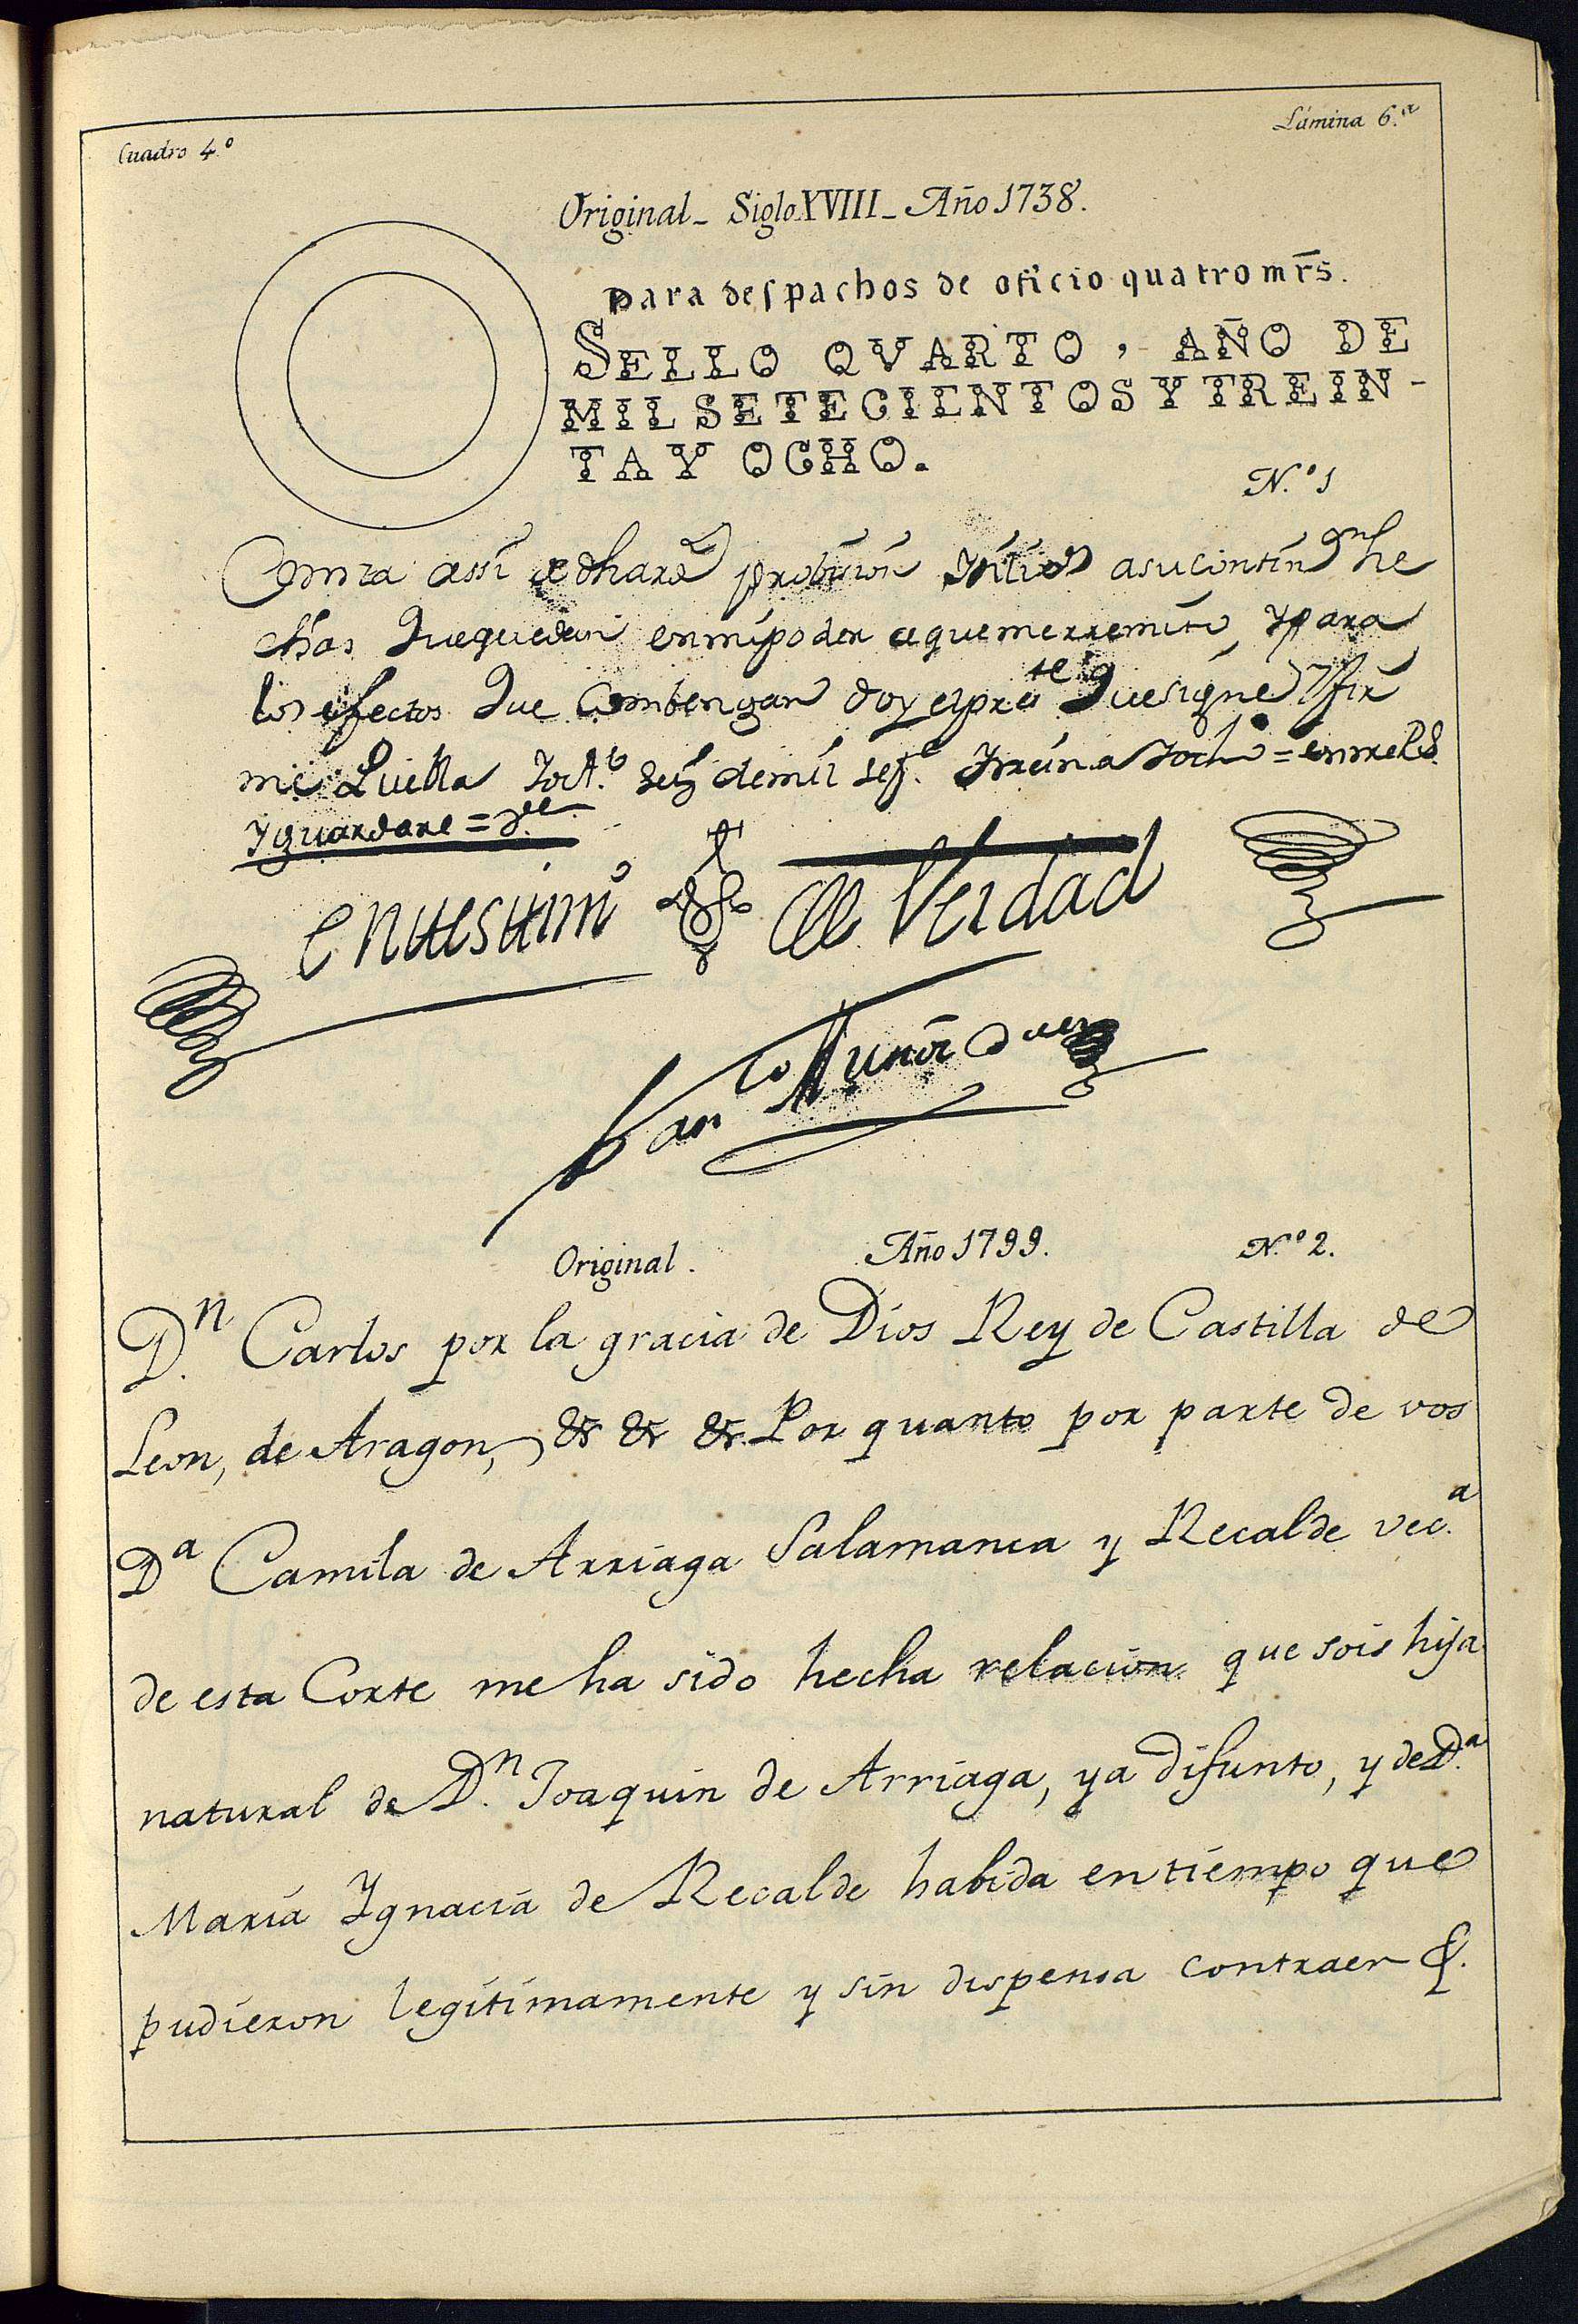 Cuadro 4.º
Lámina 6.ª
Original _ Siglo XVIII _ Año 1738.
Para despachos de oficio quatro mr̄s.
SELLO QVARTO, AÑO DE
MIL SETECIENTOS Y TREIN-
TA Y OCHO.
N.º 1
Consta assi de dha Rˡ probision asu continⁿ he
chas que quedan en mi poder a que me rremito y para
los efectos que Combengan doy el preᵗᵉ que signe y fir
me Quella y oct.ᵉ de mil setᵉ. treinta y ocho = enmrᵈᵒ
y guardare = Vᵉ
en testimᵒ de Verdad
Franᶜᵒ Muñoz
Original.
Año 1799.
N.º 2.
D.ⁿ Carlos por la gracia de Dios Rey de Castilla de
Leon, de Aragon, & & &. Por quanto por parte de vos
Dª Camila de Arriaga Salamanca y Recalde vec.ª
de esta Corte me ha sido hecha relacion que sois hija
natural de D.ⁿ Joaquin de Arriaga, ya difunto, y de D.ª
Maria Ygnacia de Recalde habida en tiempo que
pudieron legitimamente y sin dispensa contraer &.